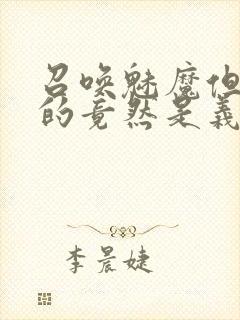 召唤魅魔但
的竟然是义
李晨婕